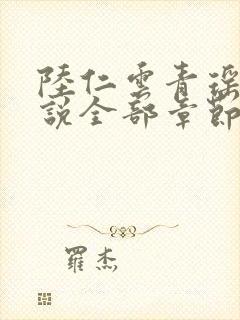 陸仁雲青瑶
說全部章節
羅杰